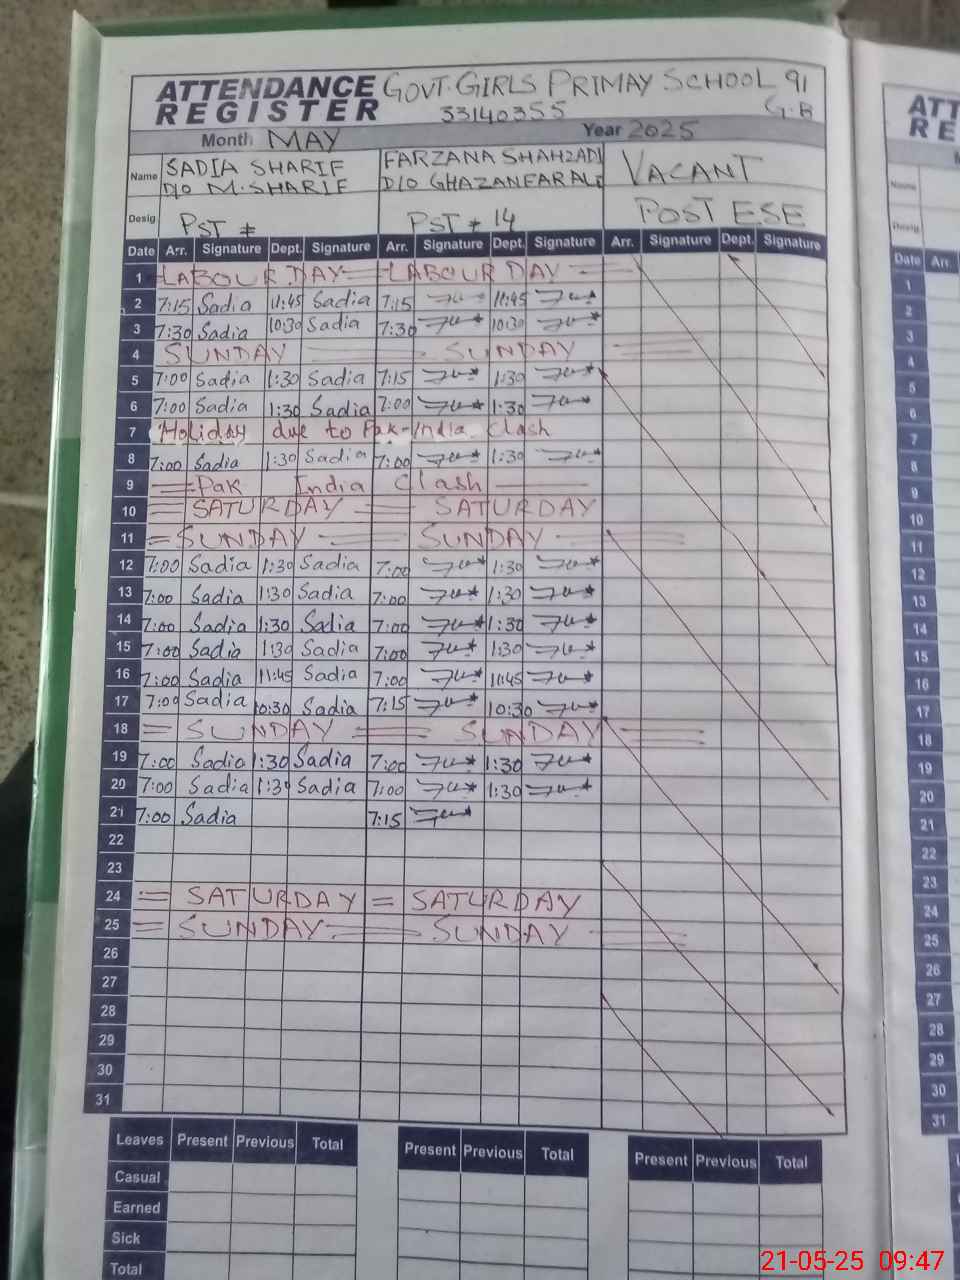 ATTENDANCE REGISTER GOVT. GIRLS PRIMAY SCHOOL 91 G.B
33140355
Month MAY Year 2025
Name SADIA SHARIF D/O M.SHARIF FARZANA SHAHZADI D/O GHAZANFARALI VACANT
Desig PST # PST # 14 POST ESE
Date Arr. Signature Dept. Signature Arr. Signature Dept. Signature Arr. Signature Dept. Signature
1 LABOUR DAY LABOUR DAY
2 7:15 Sadia 11:45 Sadia 7:15 11:45
3 7:30 Sadia 10:30 Sadia 7:30 10:30
4 SUNDAY SUNDAY
5 7:00 Sadia 1:30 Sadia 7:15 1:30
6 7:00 Sadia 1:30 Sadia 7:00 1:30
7 Holiday due to Pak-India Clash
8 7:00 Sadia 1:30 Sadia 7:00 1:30
9 Pak India Clash
10 SATURDAY SATURDAY
11 SUNDAY SUNDAY
12 7:00 Sadia 1:30 Sadia 7:00 1:30
13 7:00 Sadia 1:30 Sadia 7:00 1:30
14 7:00 Sadia 1:30 Sadia 7:00 1:30
15 7:00 Sadia 1:30 Sadia 7:00 1:30
16 7:00 Sadia 11:45 Sadia 7:00 11:45
17 7:00 Sadia 10:30 Sadia 7:15 10:30
18 SUNDAY SUNDAY
19 7:00 Sadia 1:30 Sadia 7:00 1:30
20 7:00 Sadia 1:30 Sadia 7:00 1:30
21 7:00 Sadia 7:15
22
23
24 SATURDAY SATURDAY
25 SUNDAY SUNDAY
26
27
28
29
30
31
Leaves Present Previous Total Present Previous Total Present Previous Total
Casual
Earned
Sick
Total
ATT
RE
Date Arr.
1
2
3
4
5
6
7
8
9
10
11
12
13
14
15
16
17
18
19
20
21
22
23
24
25
26
27
28
29
30
31
21-05-25 09:47